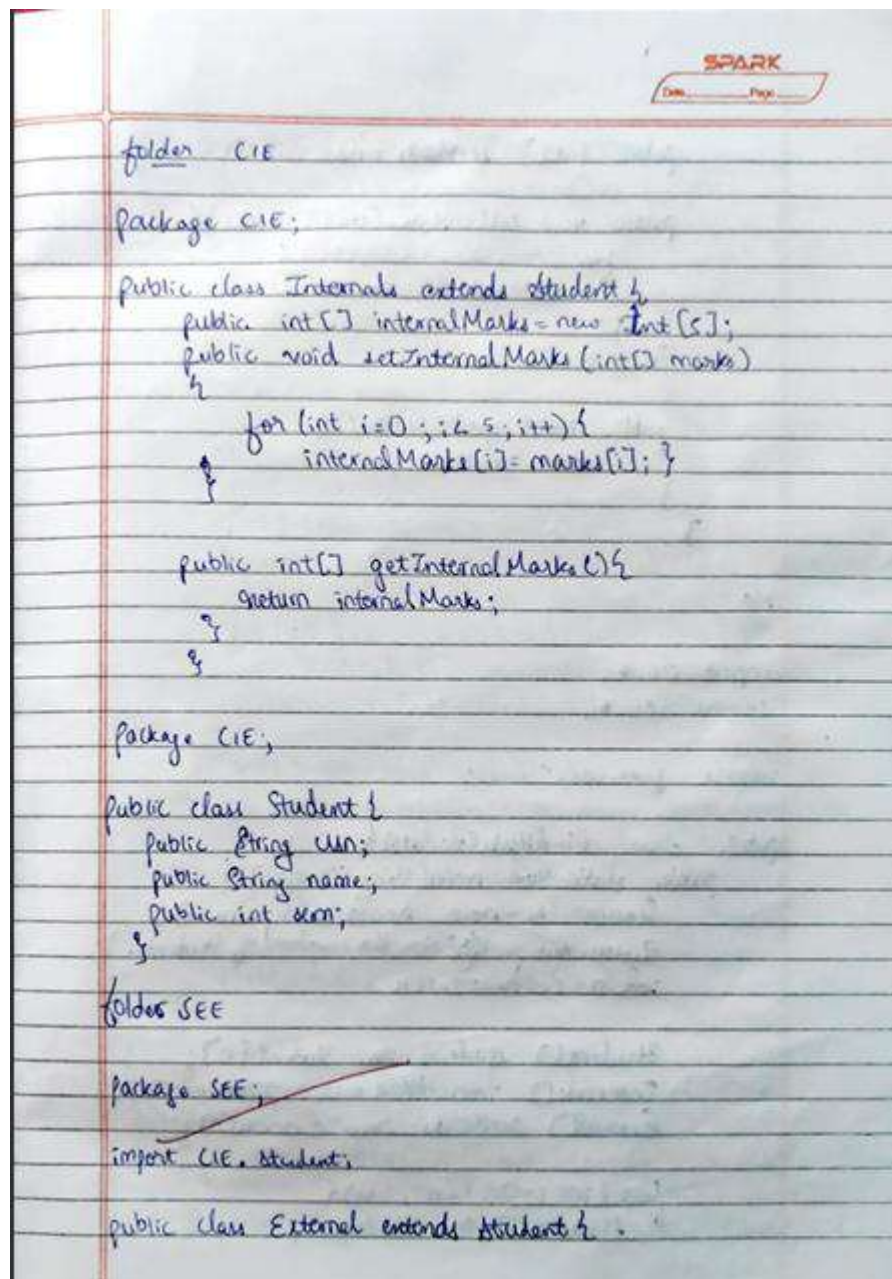 SPARK
Date Page
folder CIE
package CIE;
public class Internals extends Student {
public int[] internalMarks = new Int [5];
public void setInternalMarks (int[] marks)
{
for (int i=0 ; i< 5 ; i++) {
internalMarks [i] = marks[i]; }
}
public int[] getInternalMarks () {
return internalMarks ;
}
}
package CIE;
public class Student {
public String usn;
public String name;
public int sem;
}
folder SEE
package SEE;
import CIE. Student;
public class External extends Student {